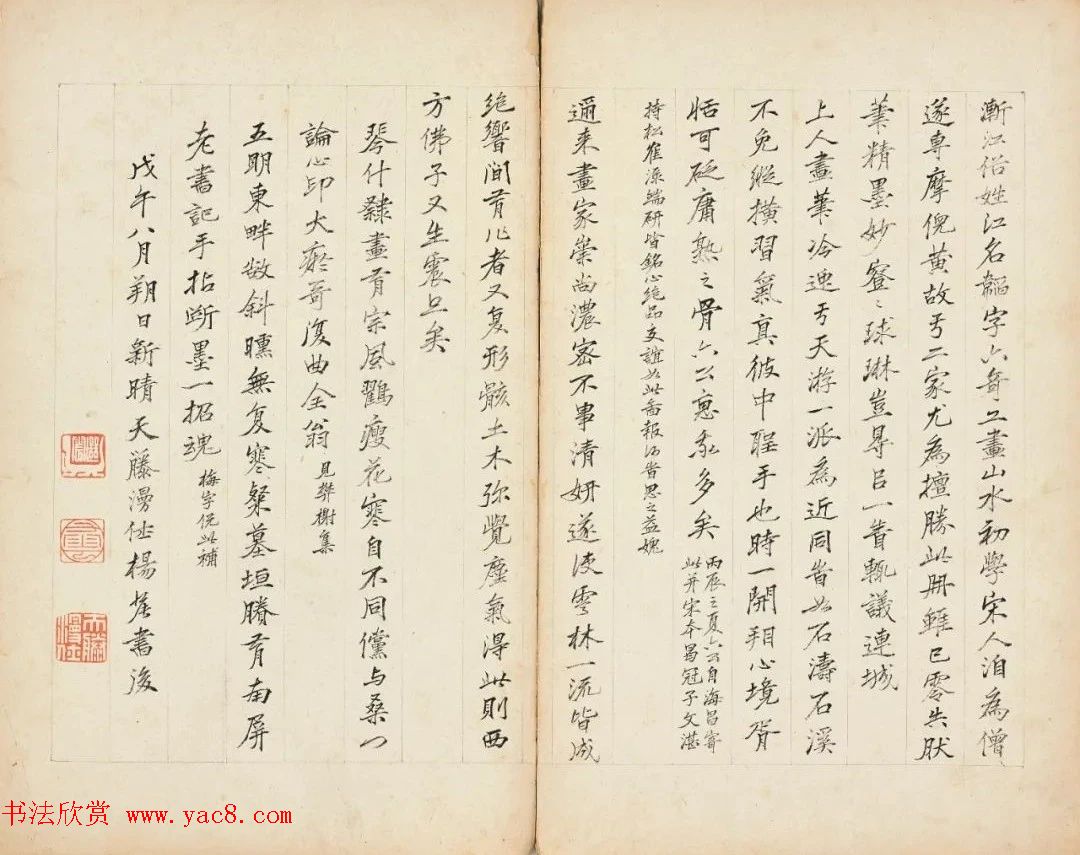 漸江俗姓江名韜字六奇工畫山水初學宋人洎為僧
遂專摩倪黃故于二家尤為擅勝此冊雖已零失肰
筆精墨妙寥〻球琳豈尋呂一眚輒議連城
上人畫筆冷逸于天游一派為近同昔如石濤石溪
不免縱橫習氣真彼中聖手也時一開翔心境胥
恬可砭庸熟之骨六公惠我多矣
丙辰之夏六公自海昌寄
此并宋本曷冠子文湛
持松崔澡端研皆銘心絕品交誼如此啇報何昔思之益媿
邇來畫家崇尚濃密不事清妍遂使雩林一流皆成
絕響間有作者又复形骸土木弥覺塵氣得此則西
方佛子又生震旦矣
琴什隸畫有宗風鸛瘦花寒自不同儻与桑门
論心印大癡哥復曲全翁
見樊榭集
五明東畔數斜曛無复寒粲墓垣賸有南屏
老書記手拈斷墨一招魂
梅字侃此補
戊午八月朔日新晴天藤漫仕楊 書後
书法欣赏 www.yac8.com